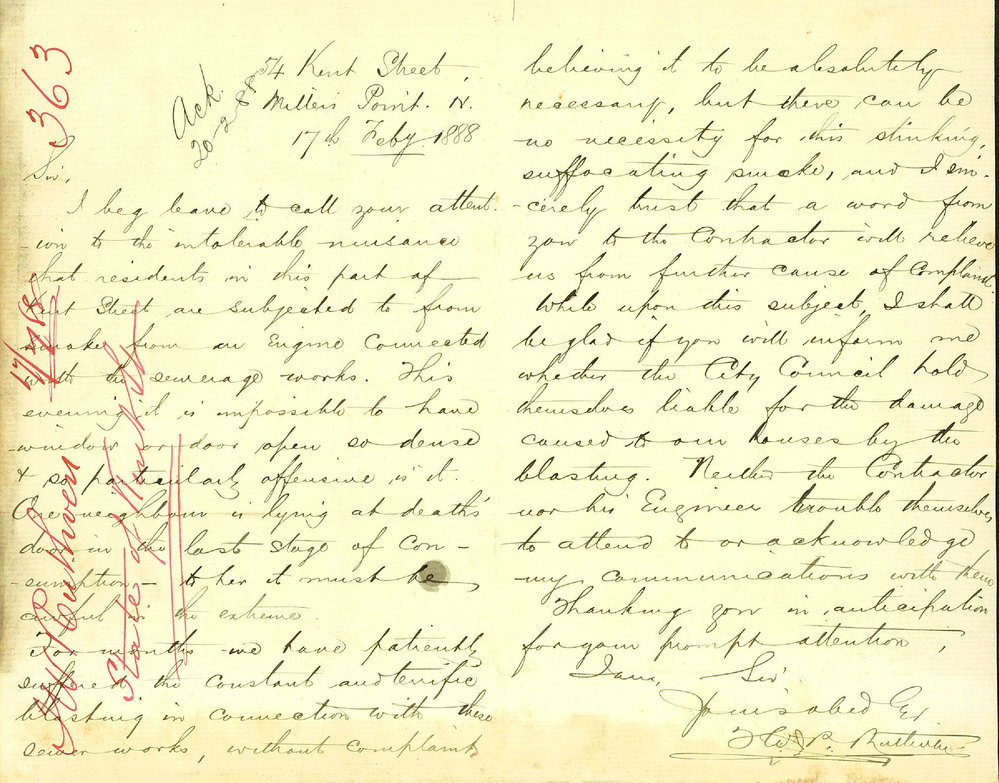 54 Kent Street,
Millers Point. N.
17th Feby 1888
Ack.
20-2-88
363
Sir,
I beg leave to call your attent-
-ion to the intolerable nuisance
that residents in this part of
Kent Street are subjected to from
smoke from an Engine Connected
with the sewerage works. This
evening it is impossible to have
window or door open so dense
& so particularly offensive is it.
One neighbour is lying at death's
door in the last stage of Con-
-sumption - to her it must be
awful in the extreme.
For months we have patiently
suffered the constant and terrific
blasting in connection with these
sewer works, without complaint
believing it to be absolutely
necessary, but there can be
no necessity for this stinking,
suffocating smoke, and I sin-
-cerely trust that a word from
you to the Contractor will relieve
us from further cause of Complaint.
While upon this subject, I shall
be glad if you will inform me
whether the City Council hold
themselves liable for the damage
caused to our houses by the
blasting. Neither the Contractor
nor his Engineer trouble themselves
to attend to or acknowledge
my communications with them
Thanking you in anticipation
for your prompt attention,
I am, Sir
Yours obed Sert
P. Ruthven
Ruthven
State of Kent St
17/2/88